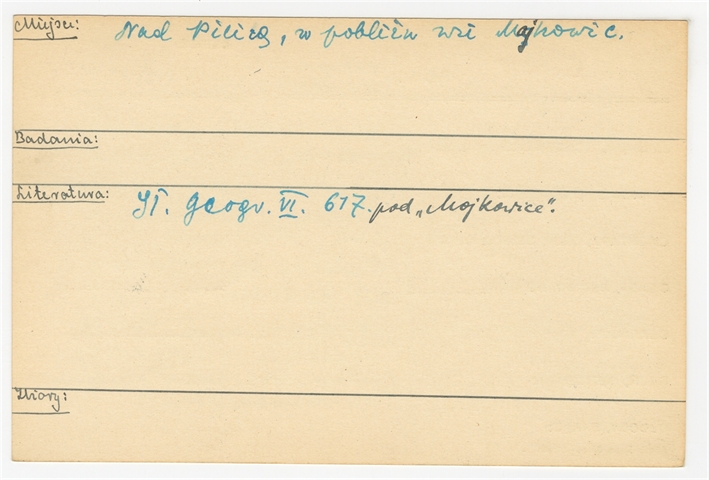 Miejsce: Nad Pilicą, w pobliżu wsi Majkowic.
Badania:
Literatura: Sł. Geogr. VI. 617. pod „Mojkowice".
Zbiory: